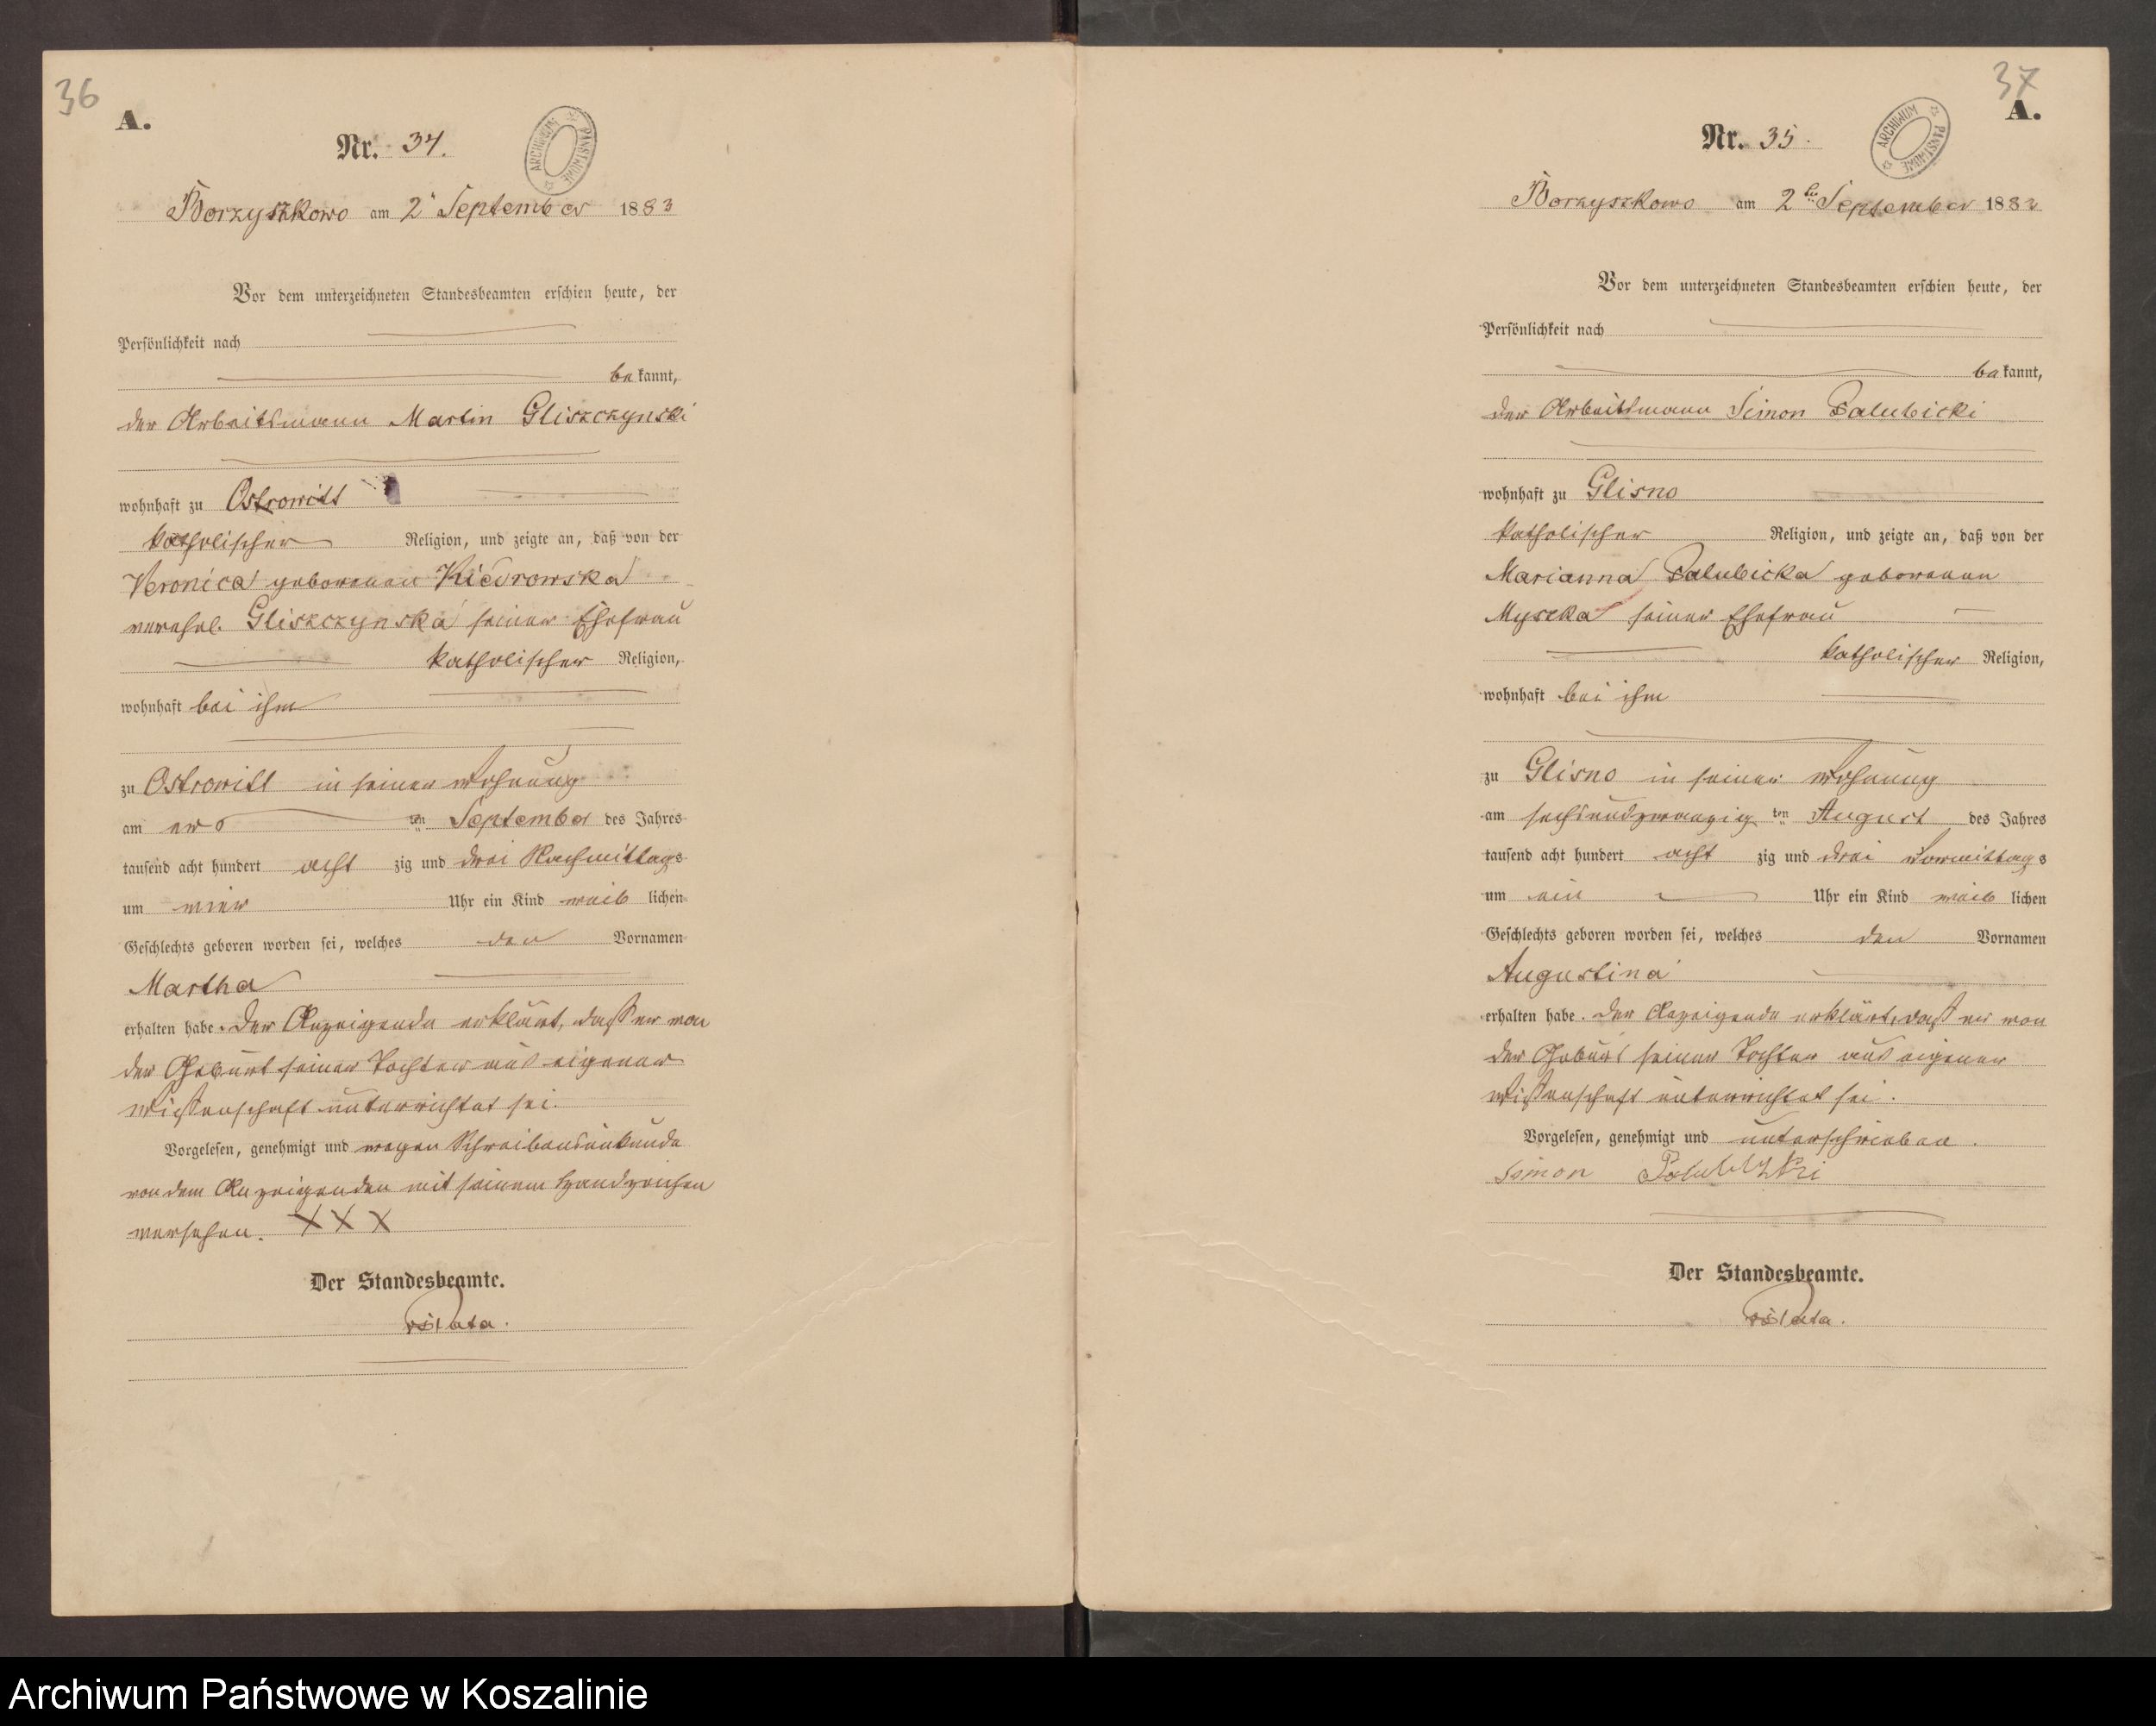 36
A.
Nr. 34.
ARCHIWUM PAŃSTWOWE
Borzyszkowo am 2 September 1883
Vor dem unterzeichneten Standesbeamten erschien heute, der
Persönlichkeit nach
bekannt,
der Arbeitsmann Martin Gliszczynski
wohnhaft zu Ostrowitt
katholischer Religion, und zeigte an, daß von der
Veronica geborenen Kiedrowska
verehel. Gliszczynska seiner Ehefrau
katholischer Religion,
wohnhaft bei ihm
zu Ostrowitt in seiner Wohnung
am ers ten September des Jahres
tausend acht hundert acht zig und drei Nachmittags
um vier Uhr ein Kind weib lichen
Geschlechts geboren worden sei, welches den Vornamen
Martha
erhalten habe. Der Anzeigende erklärt, daß er von
der Geburt seiner Tochter aus eigener
Wissenschaft unterrichtet sei.
Vorgelesen, genehmigt und wegen Schreibensunkunde
von dem Anzeigenden mit seinem Handzeichen
versehen. XXX
Der Standesbeamte.
37
A.
Nr. 35.
ARCHIWUM PAŃSTWOWE
Borzyszkowo am 2ten September 1883
Vor dem unterzeichneten Standesbeamten erschien heute, der
Persönlichkeit nach
bekannt,
der Arbeitsmann Simon Palubicki
wohnhaft zu Glisno
katholischer Religion, und zeigte an, daß von der
Marianna Palubicka geborenen
Myszka seiner Ehefrau
katholischer Religion,
wohnhaft bei ihm
zu Glisno in seiner Wohnung
am sechsundzwanzig ten August des Jahres
tausend acht hundert acht zig und drei Vormittags
um ein Uhr ein Kind weib lichen
Geschlechts geboren worden sei, welches den Vornamen
Augustina
erhalten habe. Der Anzeigende erklärt, daß er von
der Geburt seiner Tochter aus eigener
Wissenschaft unterrichtet sei.
Vorgelesen, genehmigt und unterschrieben.
Simon
Der Standesbeamte.
Archiwum Państwowe w Koszalinie